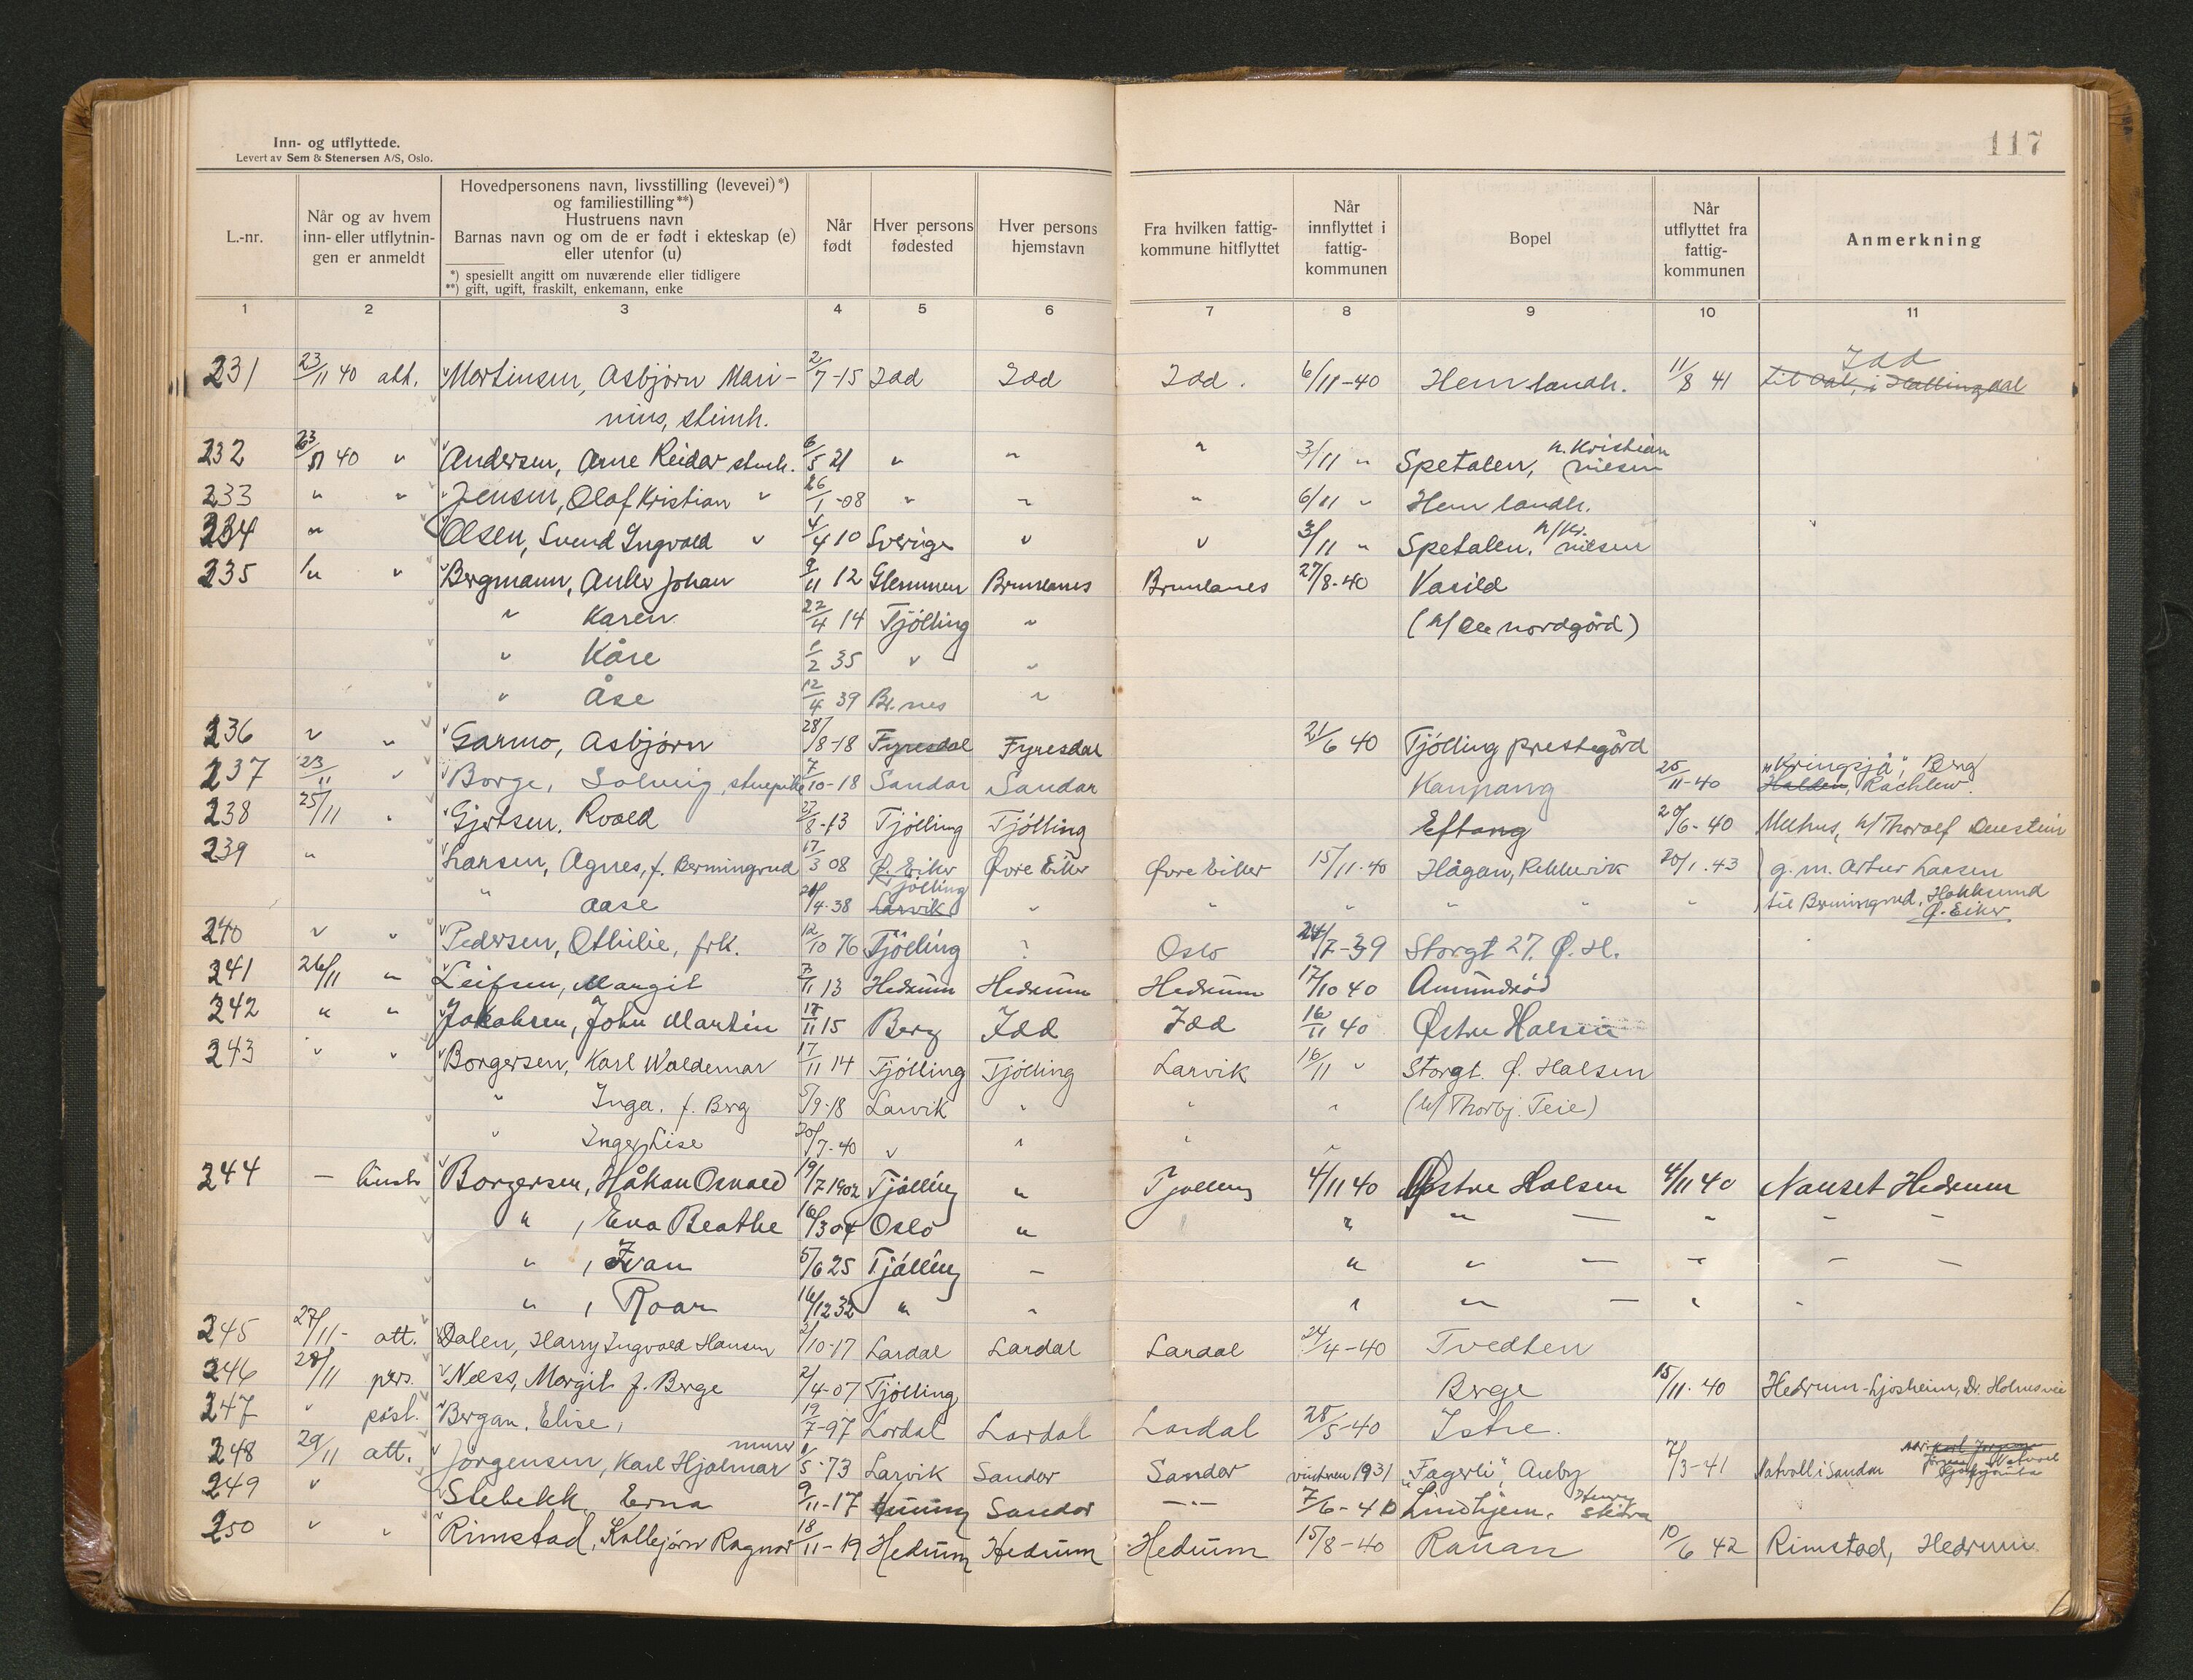 Inn- og utflyttede.
Levert av Sem & Stenersen A/S, Oslo.
117
L.-nr.
Når og av hvem inn- eller utflytnin- gen er anmeldt
Hovedpersonens navn, livsstilling (levevei)*)
og familiestilling**)
Hustruens navn
Barnas navn og om de er født i ekteskap (e)
eller utenfor (u)
*) spesiellt angitt om nuværende eller tidligere
**) gift, ugift, fraskilt, enkemann, enke
Når født
Hver persons fødested
Hver persons hjemstavn
Fra hvilken fattig- kommune hitflyttet
Når innflyttet i fattig- kommunen
Bopel
Når utflyttet fra fattig- kommunen
Anmerkning
1 2 3 4 5 6 7 8 9 10 11
Idd
231 23/11 40 att. Martinsen, Asbjørn Mari- 2/7-15 Idd Idd Idd. 6/11-40 Hem landh. 11/8 41 til Aal, i Hallingdal
nius, steinh.
232 23/11 40 " Andersen, Arne Reidar steinh. 6/5 21 " " " 3/11 " Spetalen, h. Kristian Nilsen
233 " " Jensen, Olaf Kristian " 26/1-08 " " " 6/11 " Hem landh.
234 " Olsen, Svend Ingvald " 4/4 10 Sverige " " 3/11 " Spetalen, h/Kr. Nilsen
235 " " Bergmann, Anker Johan 9/11 12 Glemmen Brunlanes Brunlanes 27/8-40 Vasild
" Karen 22/4 14 Tjölling " (h/ Ole Nordgård)
" Kåre 1/2 35 " "
" Åse 12/4 39 Br.nes "
236 " " Garmo, Asbjørn 28/8-18 Fyresdal Fyresdal 21/6 40 Tjölling prestegård
237 23/11 " Borge, Solveig, stuepike 7/10-18 Sandar Sandar Kaupang 25/11-40 "Kringsjå", Berg
Halden, Rachlew.
238 25/11 " Gjertsen, Roald 27/8-13 Tjölling Tjölling Eftang 20/6-40 Melhus, h/Thoralf Duestein
239 " Larsen, Agnes, f. Bermingrud 17/3 08 Ø. Eiker Øvre Eiker Øvre Eiker 15/11-40 Hågan, Rekkevik 20/1.43 g.m. Artur Larsen
" Aase 26/4-38 Larvik Tjölling " " " " " " til Bermingrud, Hokksund
Ø. Eiker
240 " " Pedersen, Othilie, frk. 12/10 76 Tjölling ? Oslo 24/7-39 Storgt 27. Ø. H.
241 26/11 " Leifsen, Margit 7/11 13 Hedrum Hedrum Hedrum 17/10 40 Amundrød
242 " " Jakobsen, John Martin 18/11 15 Berg Idd Idd 16/11 40 Østre Halsen
243 " " Borgersen, Karl Waldemar 17/11 14 Tjölling Tjölling Larvik 16/11 " Storgt. Ø. Halsen
" Inga. f. Berg 5/9-18 Larvik " " " (h/ Thorbj. Teie)
" Inger Lise 20/7-40 " " " "
244 — Borgersen, Håkan Osvald 19/7 1902 Tjölling " Tjølling 4/11 40 Østre Halsen 4/11 40 Nanset Hedrum
" , Eva Beathe 16/3 04 Oslo " " " — " — —
" , Ivan 5/6 25 Tjölling — " " — " — —
" , Roar 16/12 32 " " " " — " -
245 27/11- att. Dalen, Harry Ingvald Hansen 2/10-17 Lardal Lardal Lardal 24/4-40 Tvedten
246 28/11 pers. Næss, Margit f. Berge 2/4-07 Tjölling Berge 15/11-40 Hedrum-Ljosheim, Dr. Holmsvei
247 " post. Bergan, Elise, 19/7-97 Lardal Lardal Lardal 28/5-40 Istre.
248 29/11 att. Jørgensen, Karl Hjalmar murer 8/5-73 Larvik Sandar Sandar vinteren 1931 "Fagerli", Auby 7/3-41 Natvall i Sandar
249 " Slebekk, Erna 9/11-17 Sandar —"— 7/6-40 Lindhjem. Henry
250 " " Rimstad, Kallejørn Ragnar 18/11-19 Hedrum Hedrum Hedrum 15/8-40 Rauan 10/6 42 Rimstad, Hedrum